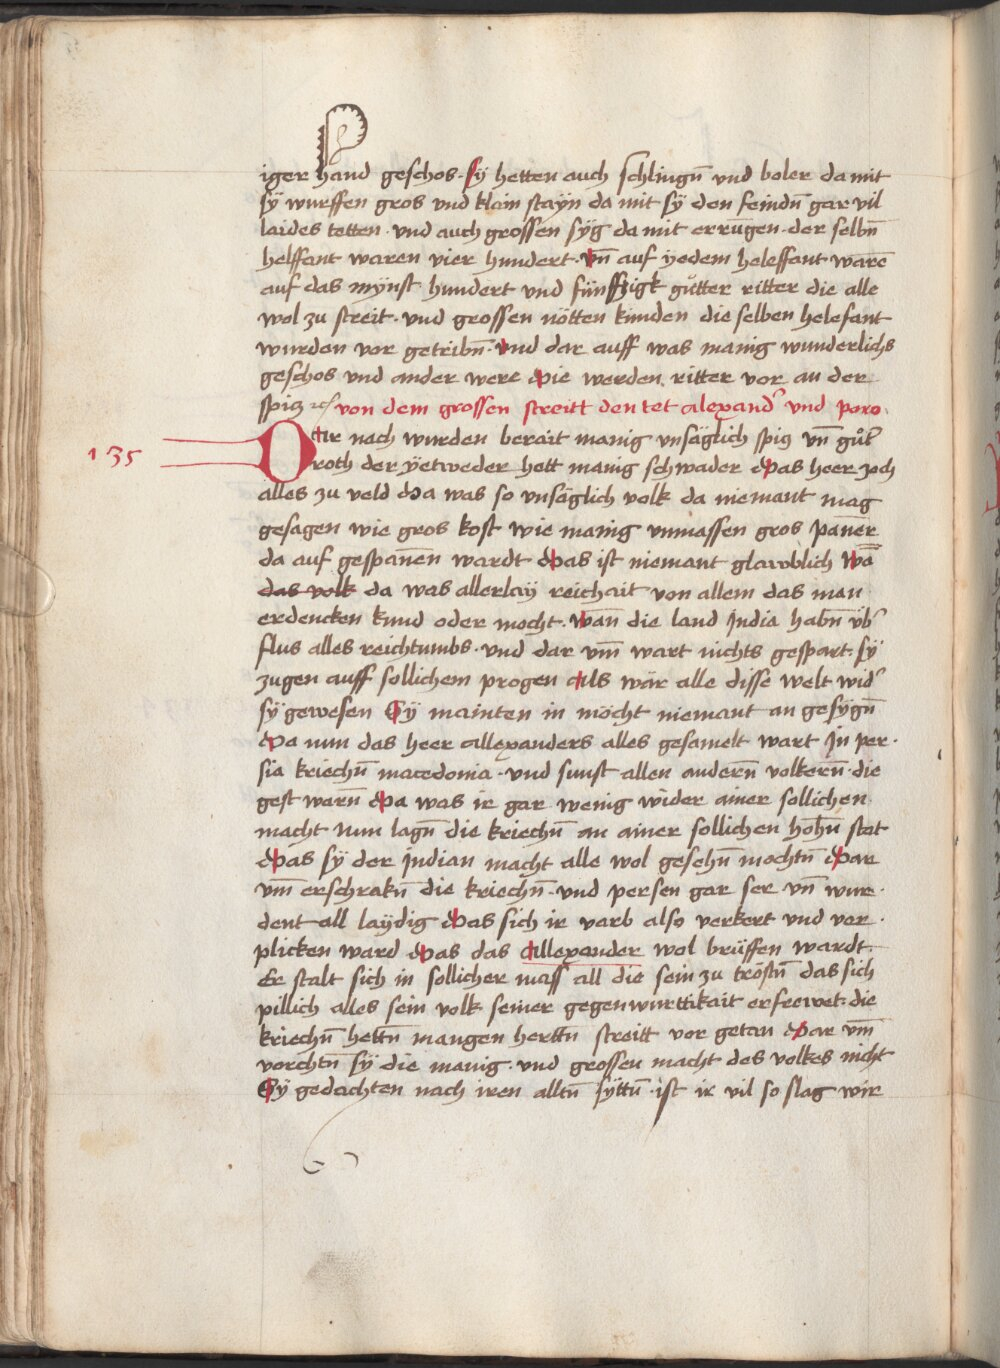 iger hand geschos. sÿ hetten auch schlingn̄ und boler da mit
sÿ wurffen gros und klain staÿn da mit sÿ den feindn̄ gar vil
laides tetten. und auch grossen sÿg da mit errūgen. der selbn̄
helffant waren vier hundert. vn̄ auf ÿedem heleffant warē
auf das mÿnst hundert und fünffzigk gůtter ritter die alle
wol zu streit. und grossen nötten kunden die selben helefant
wurden vor getribn̄. und dar auff was manig wunderlichs
geschos und ander were die werden ritter vor an der
spicz von dem grossen streitt den tet alexand' und poro.
135
Dar nach wurden berait manig unsäglich spicz vn̄ gůt
roth der ÿetweder hett manig schwader das heer zoch
alles zu veld da was so unsäglich volk da niemant mag
gesagen wie gros kost wie manig unmassen gros panēr
da auf gespanēn wardt das ist niemant glawblich wā
das volk da was allerlaÿ reichait von allem das man
erdencken kund oder mocht. wan̄ die land India habn̄ üb'
flus alles reichtumbs. und dar um̄ wart nichts gespart. sÿ
zugen auff sollichem progen als wär alle disse welt wid'
sÿ gewesen Sÿ mainten in möcht niemant an gesÿgn̄
Da nun das heer allexanders alles gesamelt wart In per.
sia kriechn̄ macedonia. und sunst allen andern̄ volkern̄. die
gest warn̄ da was ir gar wenig wider ainer sollichen
macht Nun lagn̄ die kriechn̄ an ainer sollichen hohn̄ stat
das sÿ der Indian macht alle wol gesehn̄ mochtn̄ dar
vm̄ erschrakn̄ die kriechn̄. und persen gar ser vn̄ wur.
dent all laÿdig das sich ir varb also verkert und ver.
plicken ward das das Allexander wol brüffen wardt.
Er stalt sich in sollicher mass all die sein zu tröstn̄ das sich
pillich alles sein volk seiner gegenwurttikait erfeewet. die
kriechn̄ hettn̄ mangen herttn̄ streitt vor getan dar vm̄
vorchtn̄ sÿ die manig. und grossen macht des volkes nicht
Sÿ gedachten nach iren alltn̄ sÿttn̄. ist ir vil so slag wir